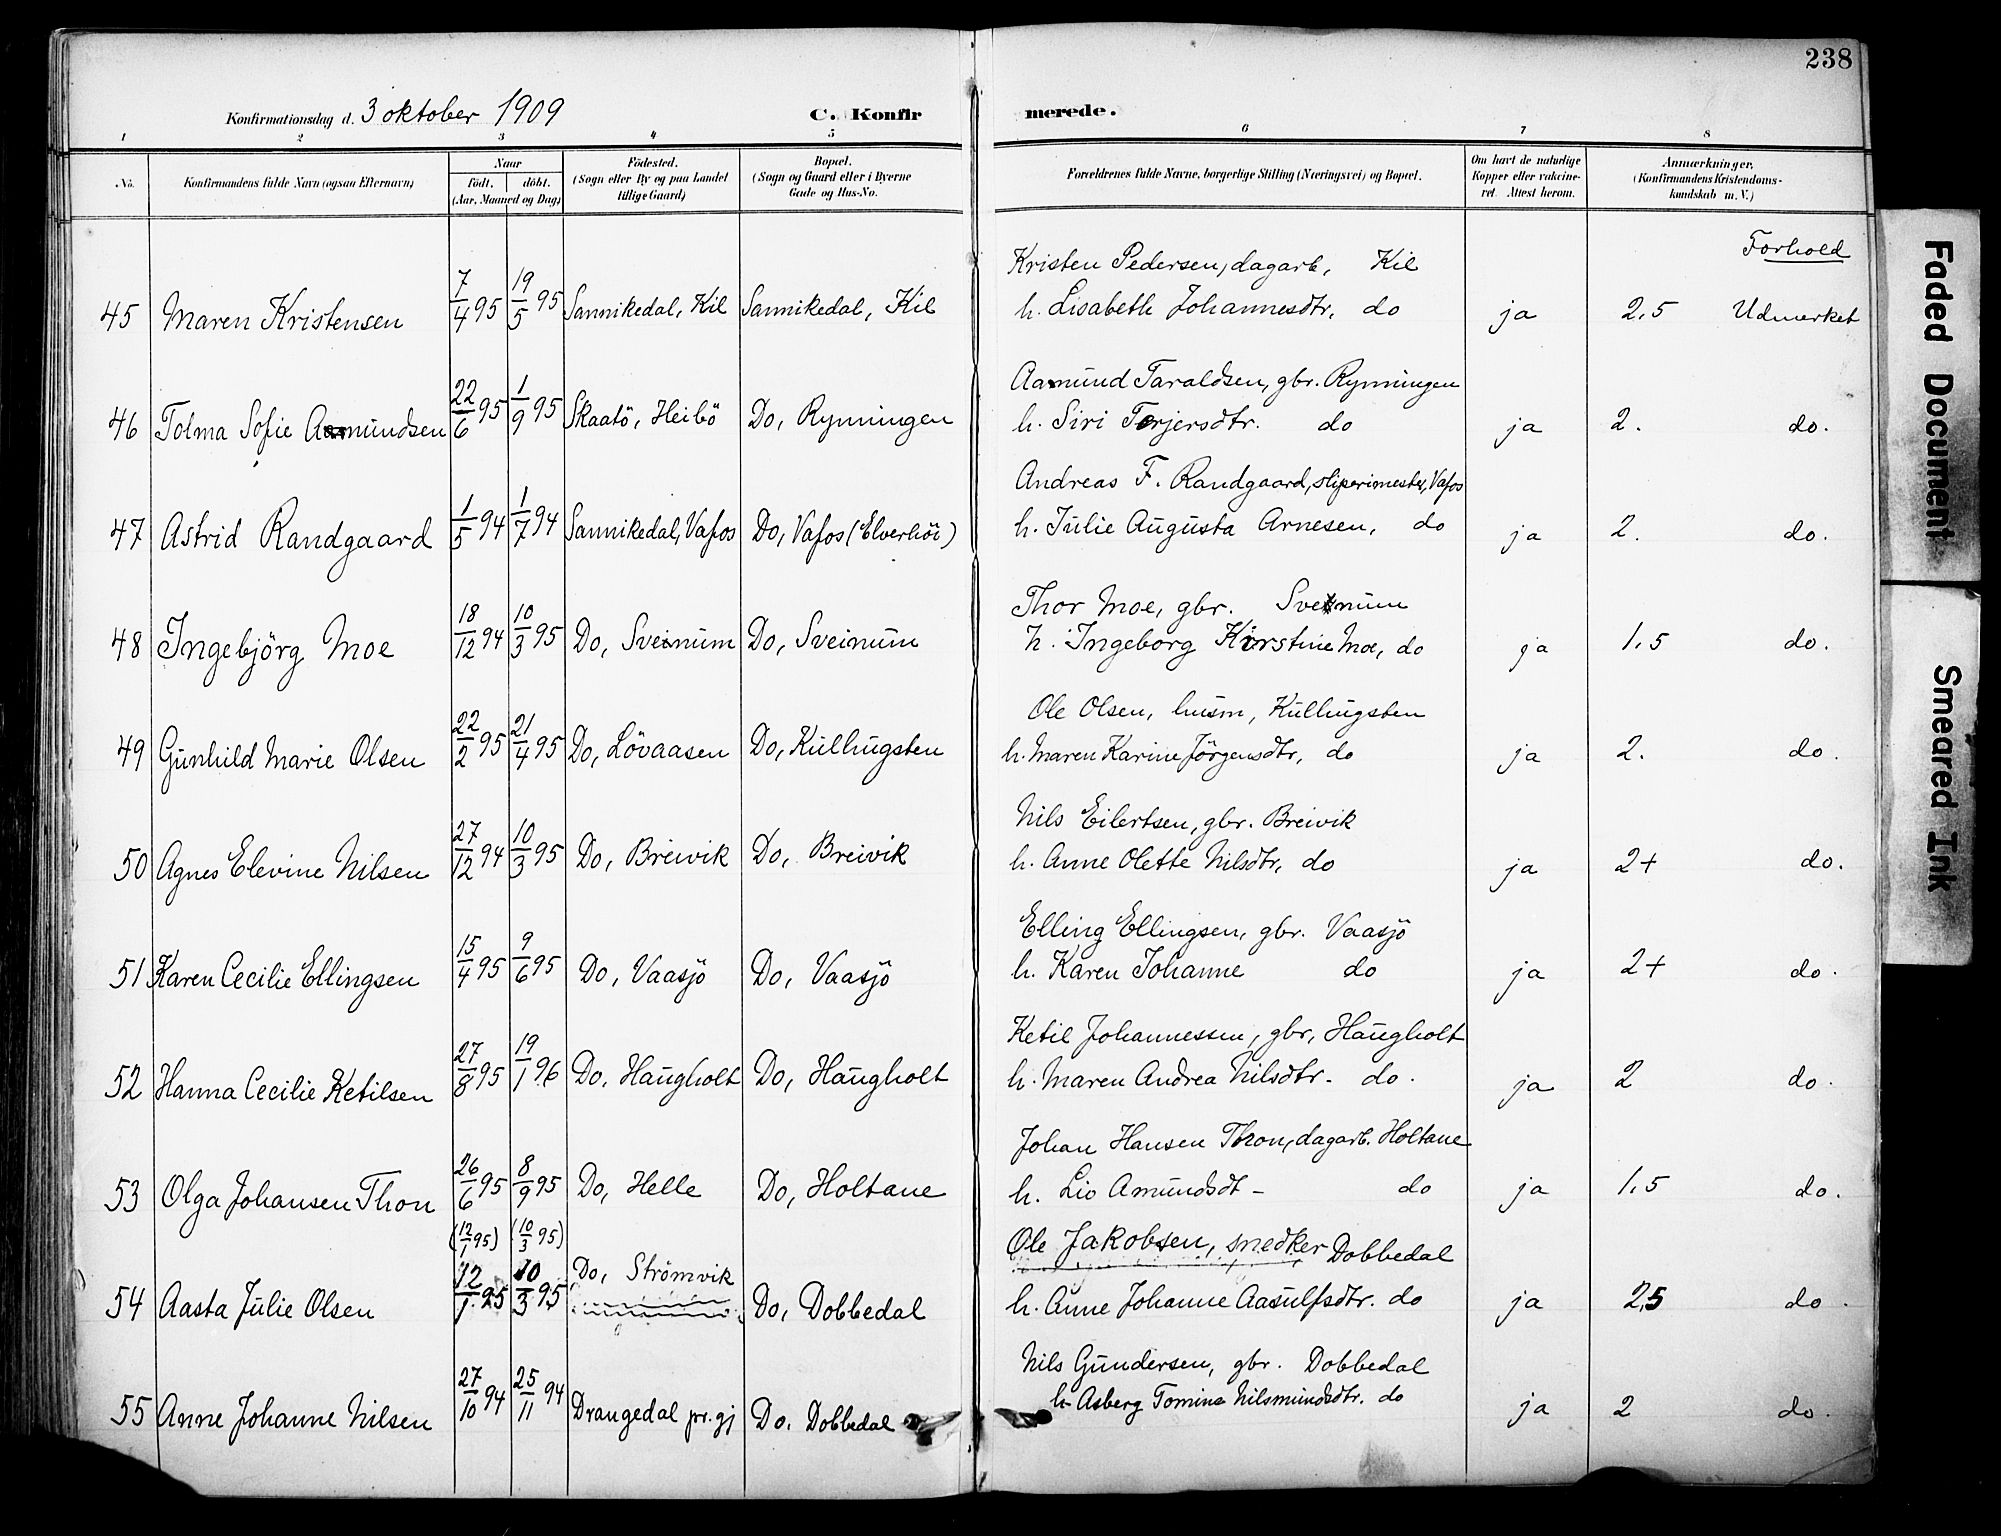 238
Konfirmationsdag d. 3 oktober 1909
C. Konfirmerede.
1 2 3 4 5 6 7 8
No. Konfirmandens fulde Navn (ogsaa Efternavn) Naar født. døbt. (Aar, Maaned og Dag) Fødested. (Sogn eller By og paa Landet tillige Gaard) Bopæl. (Sogn og Gaard eller i Byerne Gade og Hus-No. Forældrenes fulde Navne, borgerlige Stilling (Næringsvei) og Bopæl. Om havt de naturlige Kopper eller vakcineret. Attest herom. Anmærkninger. (Konfirmandens Kristendomskundskab m. V.)
Forhold
Kristen Pedersen, dagarb, Kil
45 Maren Kristensen 7/4 95 19/5 95 Sannikedal, Kil Sannikedal, Kil h. Lisabeth Johannesdtr, do ja 2,5 Udmerket
Aamund Taraldsen, gbr. Rynningen
46 Tolma Sofie Aamundsen 22/6 95 1/9 95 Skaatö, Heibö Do, Rynningen h. Siri Terjersdtr. do ja 2. do.
Andreas F. Randgaard, sliperimester, Vafos
47 Astrid Randgaard 1/5 94 1/7 94 Sannikedal, Vafos Do, Vafos (Elverhöi) h. Julie Augusta Arnesen, do ja 2. do.
Thor Moe, gbr. Sveinum
48 Ingebjörg Moe 18/12 94 10/3 95 Do, Sveinum Do, Sveinum h. Ingeborg Kirstine Moe, do ja 1,5 do.
Ole Olsen, husm, Kulhugsten
49 Gunhild Marie Olsen 22/2 95 21/4 95 Do, Lövaasen Do, Kulhugsten h. Maren Karine Jörgensdtr, do ja 2. do.
Nils Eilertsen, gbr. Breivik
50 Agnes Elevine Nilsen 27/12 94 10/3 95 Do, Breivik Do, Breivik h. Anne Olette Nilsdtr, do ja 2+ do.
Elling Ellingsen, gbr. Vaasjö
51 Karen Cecilie Ellingsen 15/4 95 9/6 95 Do, Vaasjö Do, Vaasjö h. Karen Johanne do ja 2+ do.
Ketil Johannessen, gbr, Haugholt
52 Hanna Cecilie Ketilsen 27/8 95 19/1 96 Do, Haugholt Do, Haugholt h. Maren Andrea Nilsdtr. do. ja 2 do.
Johan Hansen Thon, dagarb. Holtane
53 Olga Johansen Thon 26/6 95 8/9 95 Do, Helle Do, Holtane h. Liv Amundsdt- do ja 1,5 do.
(12/1 95) (10/3 95) Ole Jakobsen, snedker Dobbedal
54 Aasta Julie Olsen 12/1 95 10/3 95 Do, Strömvik Do, Dobbedal h. Anne Johanne Aasulfsdtr. do ja 2,5 do.
Nils Gundersen, gbr. Dobbedal
55 Anne Johanne Nilsen 27/10 94 25/11 94 Drangedal pr.gj Do. Dobbedal h. Asberg Tomine Nilsmundsdtr. do ja 2 do.
Faded Document
Smeared Ink